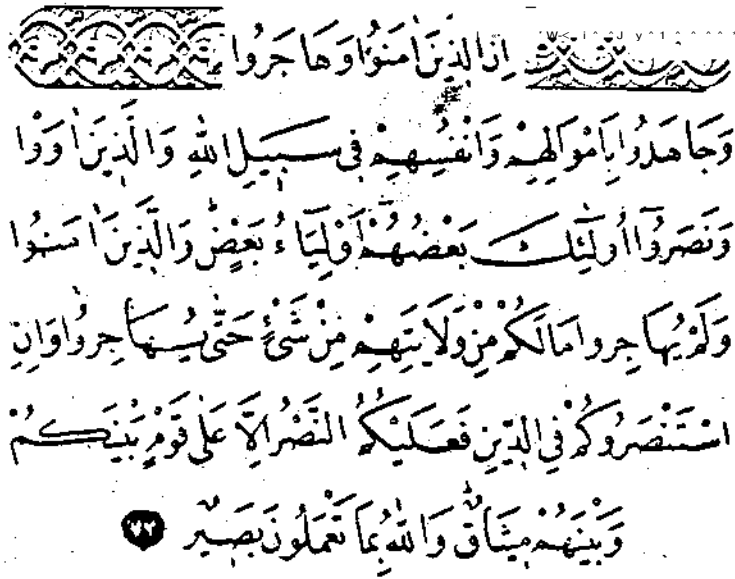 اِنَّ الَّذِينَ اٰمَنُوا وَهَاجَرُوا
وَجَاهَدُوا بِاَمْوَالِهِمْ وَاَنْفُسِهِمْ فِي سَبِيلِ اللّٰهِ وَالَّذِينَ اٰوَوْا
وَنَصَرُٓوا اُولٰٓئِكَ بَعْضُهُمْ اَوْلِيَٓاءُ بَعْضٍ وَالَّذِينَ اٰمَنُوا
وَلَمْ يُهَاجِرُوا مَالَكُمْ مِنْ وَلَايَتِهِمْ مِنْ شَيْءٍ حَتّٰى يُهَاجِرُوا وَاِنِ
اسْتَنْصَرُوكُمْ فِي الدِّينِ فَعَلَيْكُمُ النَّصْرُ اِلَّا عَلٰى قَوْمٍ بَيْنَكُمْ
وَبَيْنَهُمْ مِيثَاقٌ وَاللّٰهُ بِمَا تَعْمَلُونَ بَصِيرٌ ٧٢